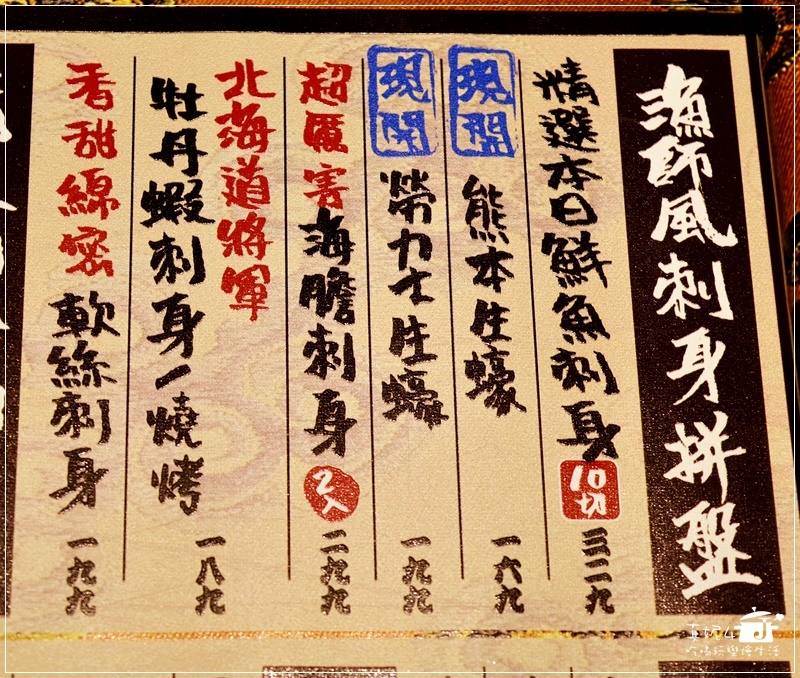 漁師風刺身拼盤
精選本日鮮魚刺身 10切 三二九
現開 熊本生蠔 一六九
現開 勞力士生蠔 一九九
超厲害海膽刺身 2入 二九九
北海道將軍
牡丹蝦刺身/燒烤 一八九
香甜綿密軟絲刺身 一九九